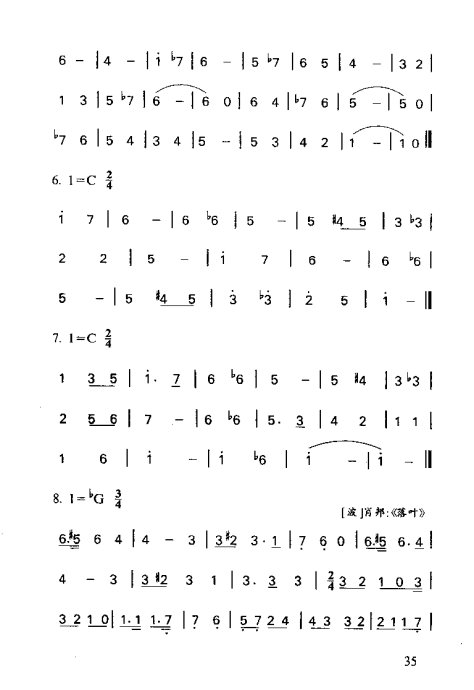 6 - | 4 - | i ♭7 | 6 - | 5 ♭7 | 6 5 | 4 - | 3 2 |
1 3 | 5 ♭7 | 6 - | 6 0 | 6 4 | ♭7 6 | 5 - | 5 0 |
♭7 6 | 5 4 | 3 4 | 5 - | 5 3 | 4 2 | 1 - | 1 0 ‖
6. 1=C 2/4
i 7 | 6 - | 6 ♭6 | 5 - | 5 #4 5 | 3 ♭3 |
2 2 | 5 - | i 7 | 6 - | 6 ♭6 |
5 - | 5 #4 5 | 3 ♭3 | 2 5 | i - ‖
7. 1=C 2/4
1 3 5 | i. 7 | 6 ♭6 | 5 - | 5 #4 | 3 ♭3 |
2 5 6 | 7 - | 6 ♭6 | 5. 3 | 4 2 | 1 1 |
1 6 | i - | i ♭6 | i - | i - ‖
8. 1=♭G 3/4
[波]肖邦:《落叶》
6.#5 6 4 | 4 - 3 | 3 #2 3·1 | 7 6 0 | 6.#5 6.4 |
4 - 3 | 3 #2 3 1 | 3. 3 3 | 2/4 3 2 1 0 3 |
3 2 1 0 | 1·1 1·7 | 7 6 | 5 7 2 4 | 4 3 3 2 | 2 1 1 7 |
35